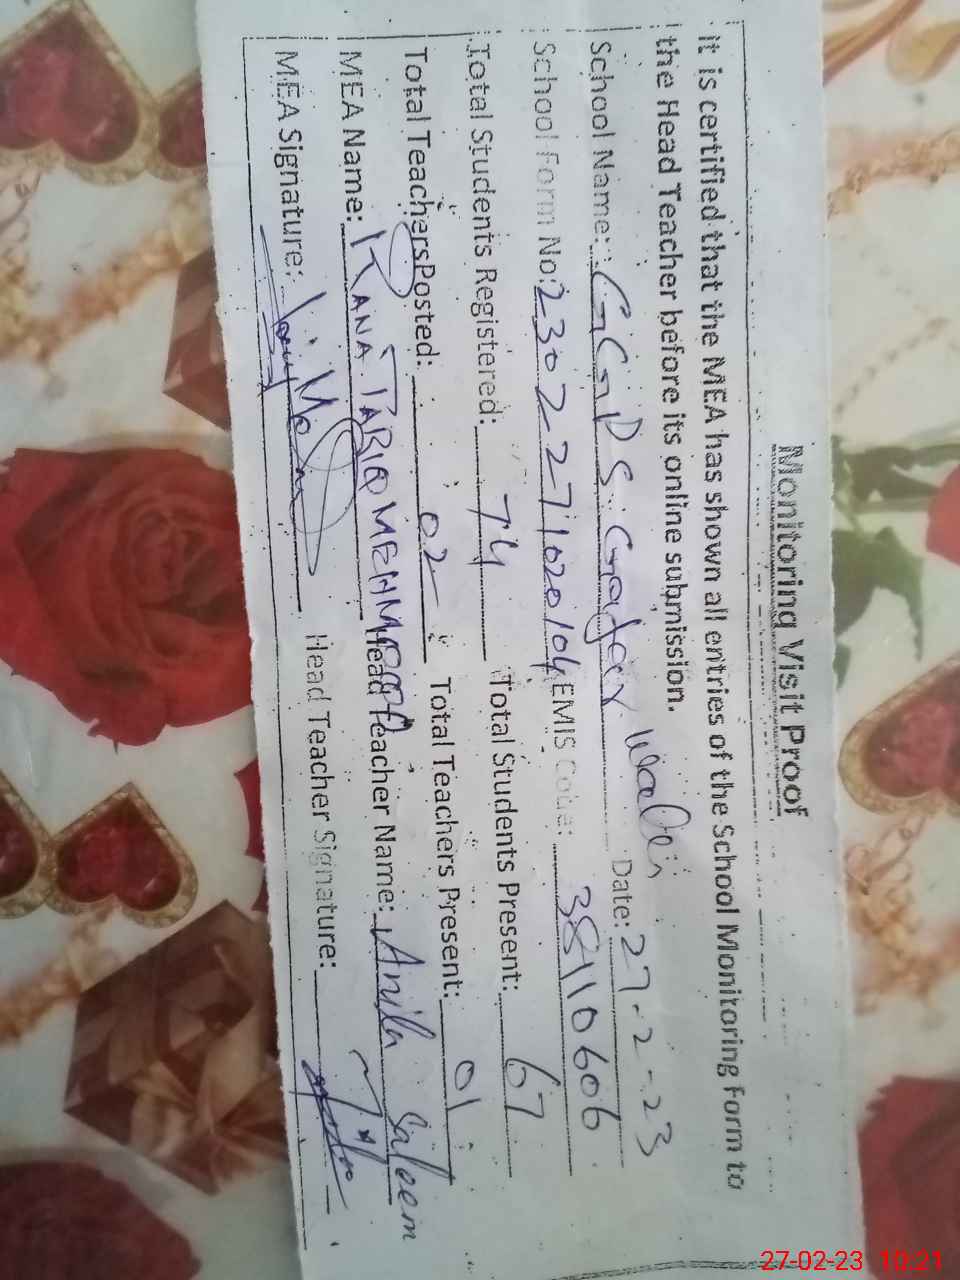 Monitoring Visit Proof
it is certified that the MEA has shown all entries of the School Monitoring Form to
the Head Teacher before its online submission.
School Name: GGPS Gader Wali Date: 27-2-23
School Form No: 2302271020104 EMIS Code: 38110606
Total Students Registered: 74 Total Students Present: 67
Total Teachers Posted: 02 Total Teachers Present: 01
MEA Name: RANA TARIQ MEHMOOD Head Teacher Name: Anila Saleem
MEA Signature: Head Teacher Signature:
27-02-23 10:21